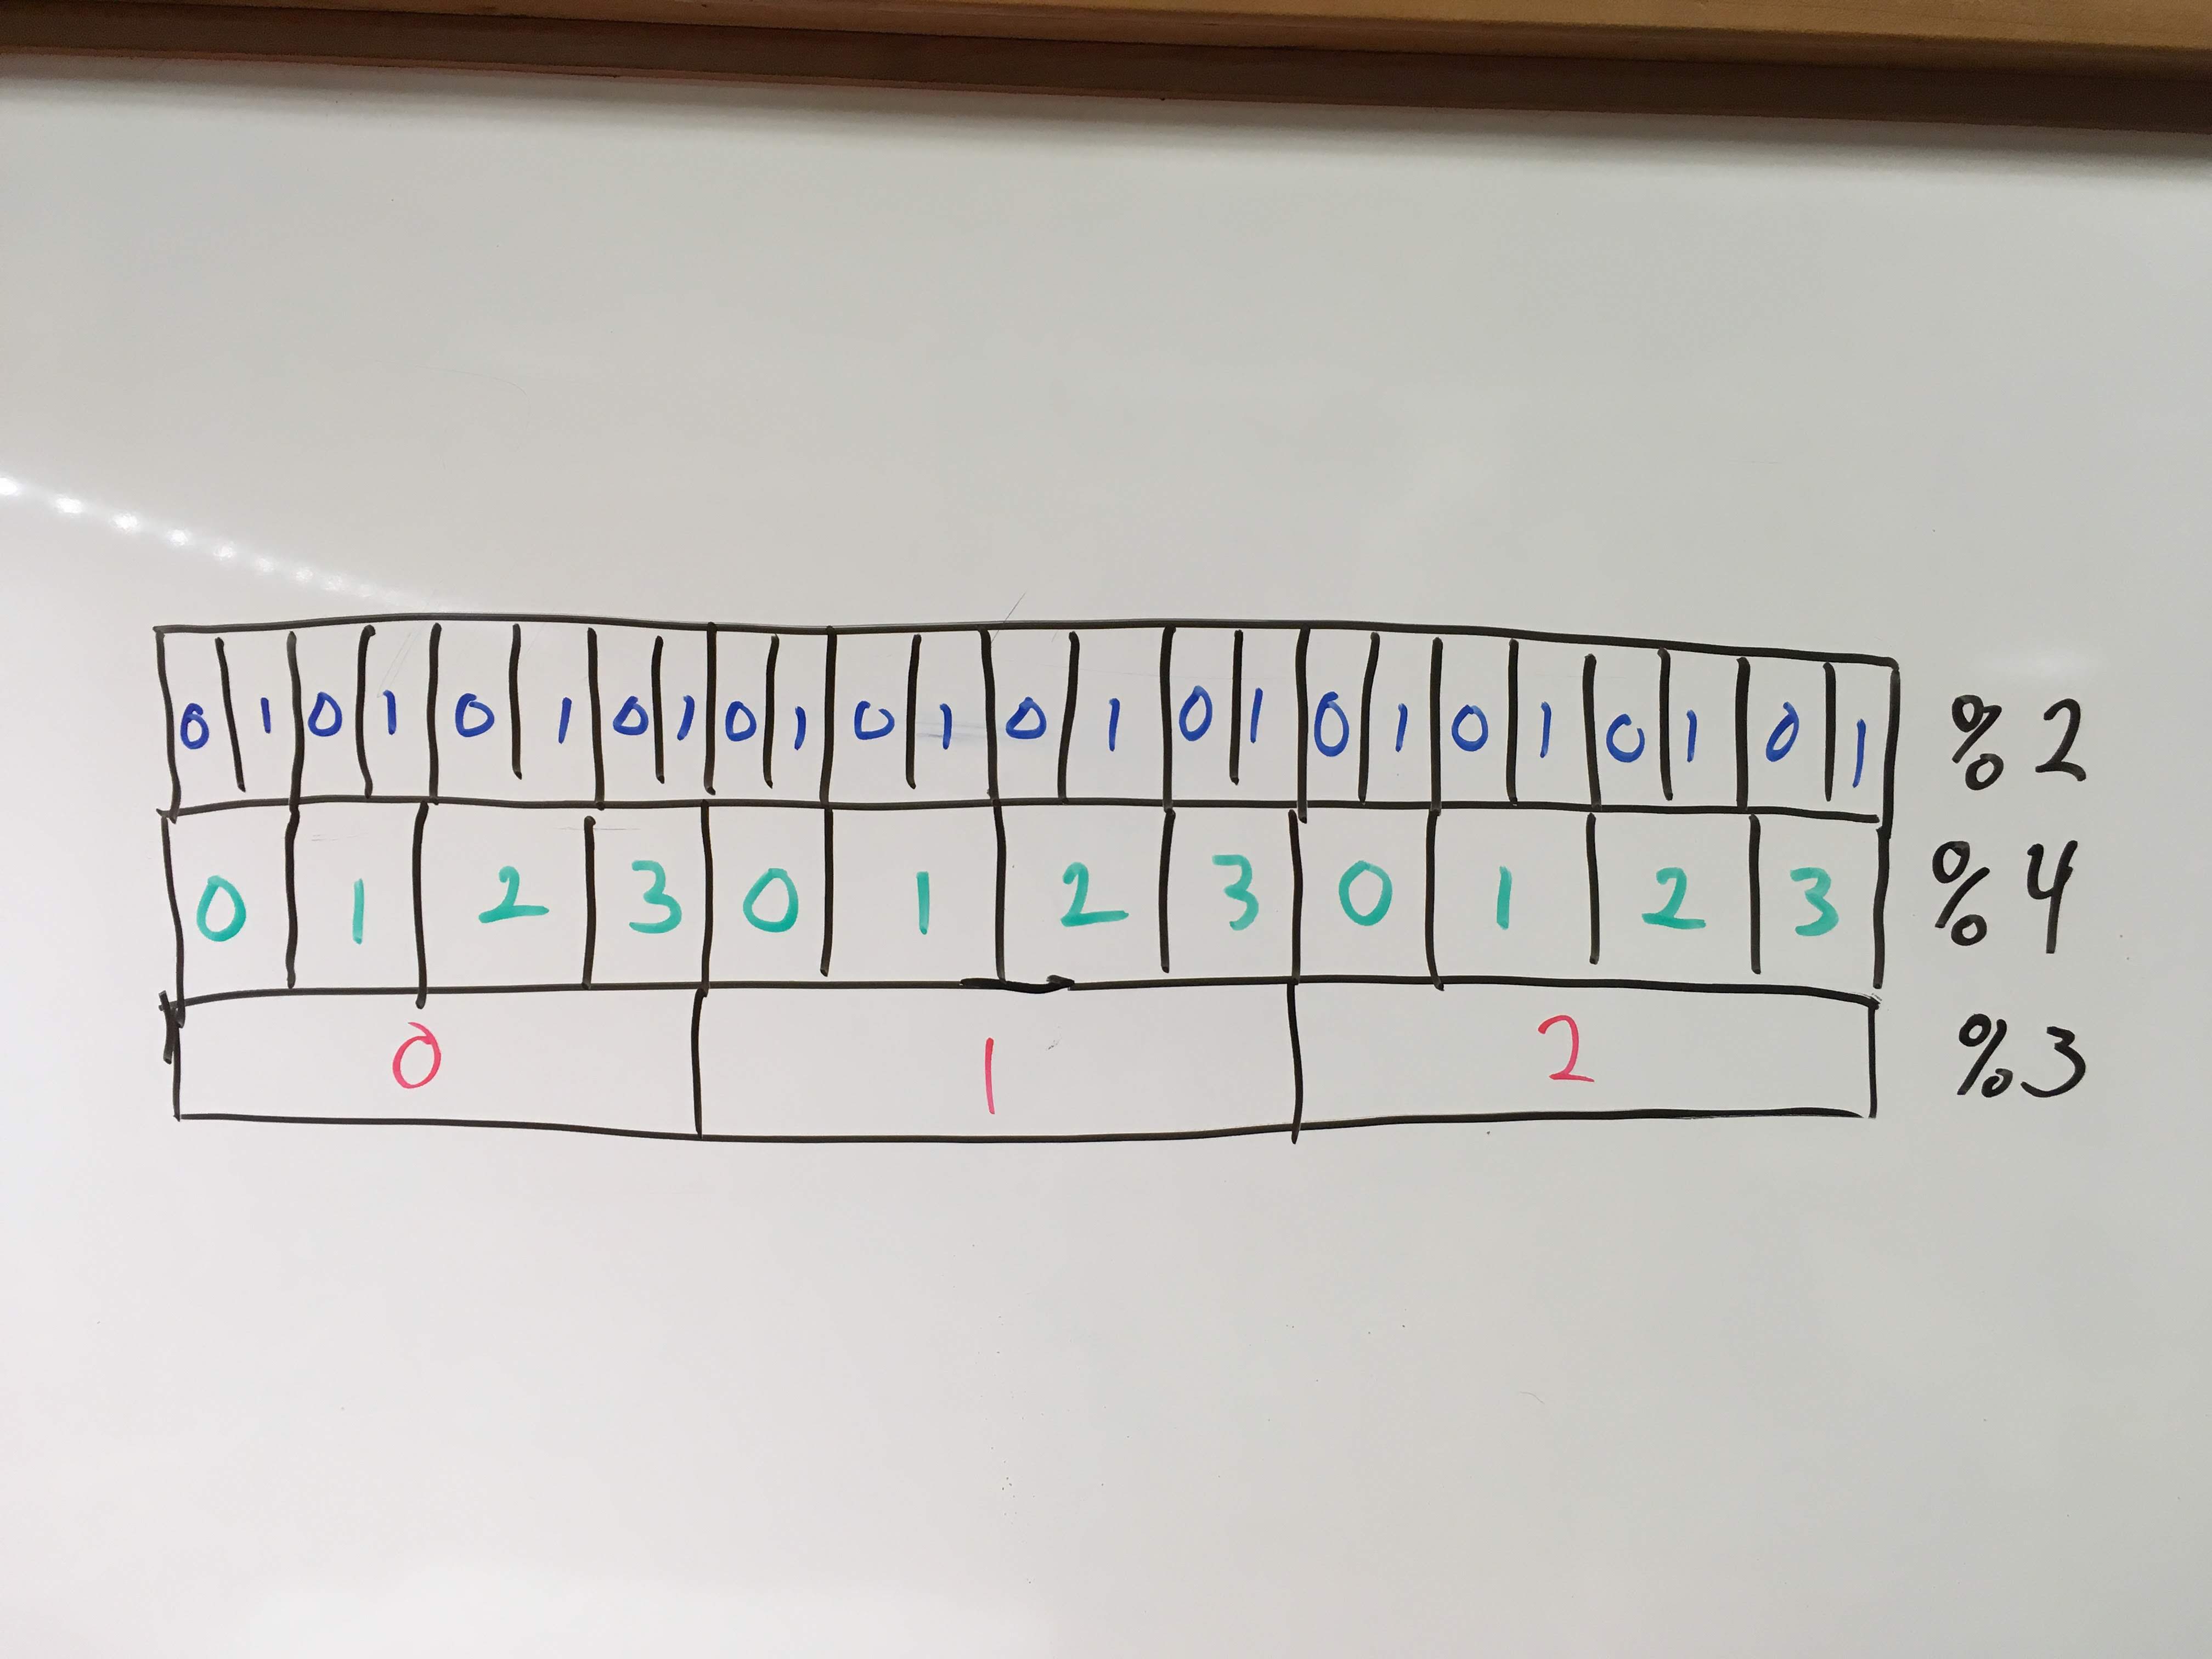 0 1 0 1 0 1 0 1 0 1 0 1 0 1 0 1 0 1 0 1 0 1 0 1 %2
0 1 2 3 0 1 2 3 0 1 2 3 %4
0 1 2 %3